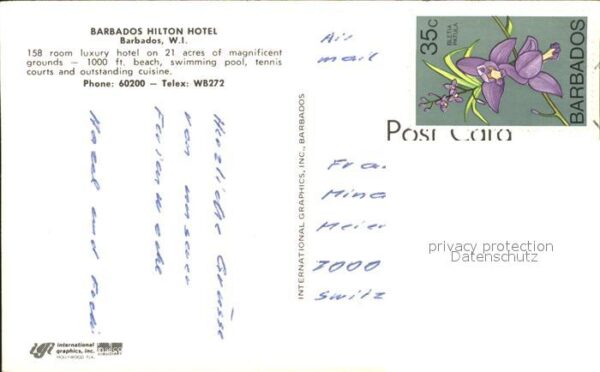 BARBADOS HILTON HOTEL
Barbados, W.I.
158 room luxury hotel on 21 acres of magnificent
grounds — 1000 ft. beach, swimming pool, tennis
courts and outstanding cuisine.
Phone: 60200 — Telex: WB272
Herzliche Grüsse
von unserer
Ferienwoche
und
INTERNATIONAL GRAPHICS, INC., BARBADOS
Air
mail
35c
BLETIA
PATULA
BARBADOS
Post Card
Frau
Mina
Meier
3000
Switz
privacy protection
Datenschutz
igi international
graphics, inc.
HOLLYWOOD FLA.